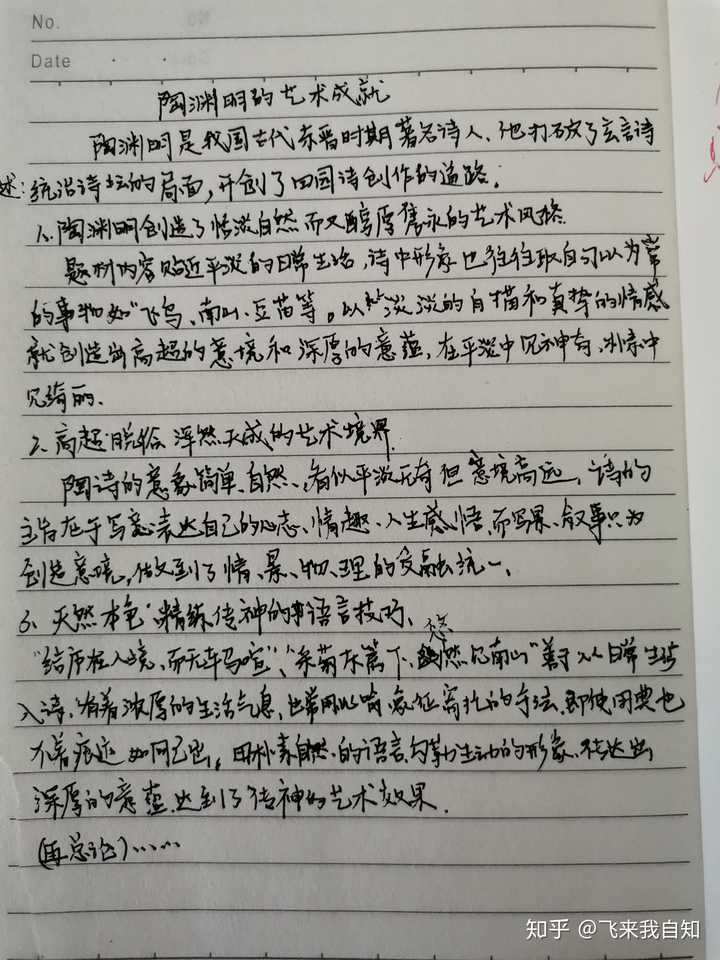 No.
Date
陶渊明的艺术成就
陶渊明是我国古代东晋时期著名诗人,他打破了玄言诗
述:统治诗坛的局面,开创了田园诗创作的道路。
1、陶渊明创造了恬淡自然而又醇厚隽永的艺术风格
题材内容贴近平淡的日常生活,诗中形象也往往取自习以为常
的事物如"飞鸟、南山、豆苗等。以淡淡的白描和真挚的情感
就创造出高超的意境和深厚的意蕴,在平淡中见神奇,朴素中
见绮丽。
2、高超 浑然天成的艺术境界
陶诗的意象简单、自然、看似平淡无奇但意境高远,诗的
主旨在于写意表达自己的心志、情趣、人生感悟,而写景、叙事只为
创造意境,做到了情、景、物、理的交融统一。
3、天然本色、精练传神的语言技巧、
"结庐在人境,而无车马喧""采菊东篱下,悠然见南山"善于以日常生活
入诗,有着浓厚的生活气息,也常用比喻象征寄托的手法,即使用典也
不着痕迹如同己出,用朴素自然的语言勾勒生动的形象、传达出
深厚的意蕴达到了传神的艺术效果.
(再总论)……
知乎 @飞来我自知